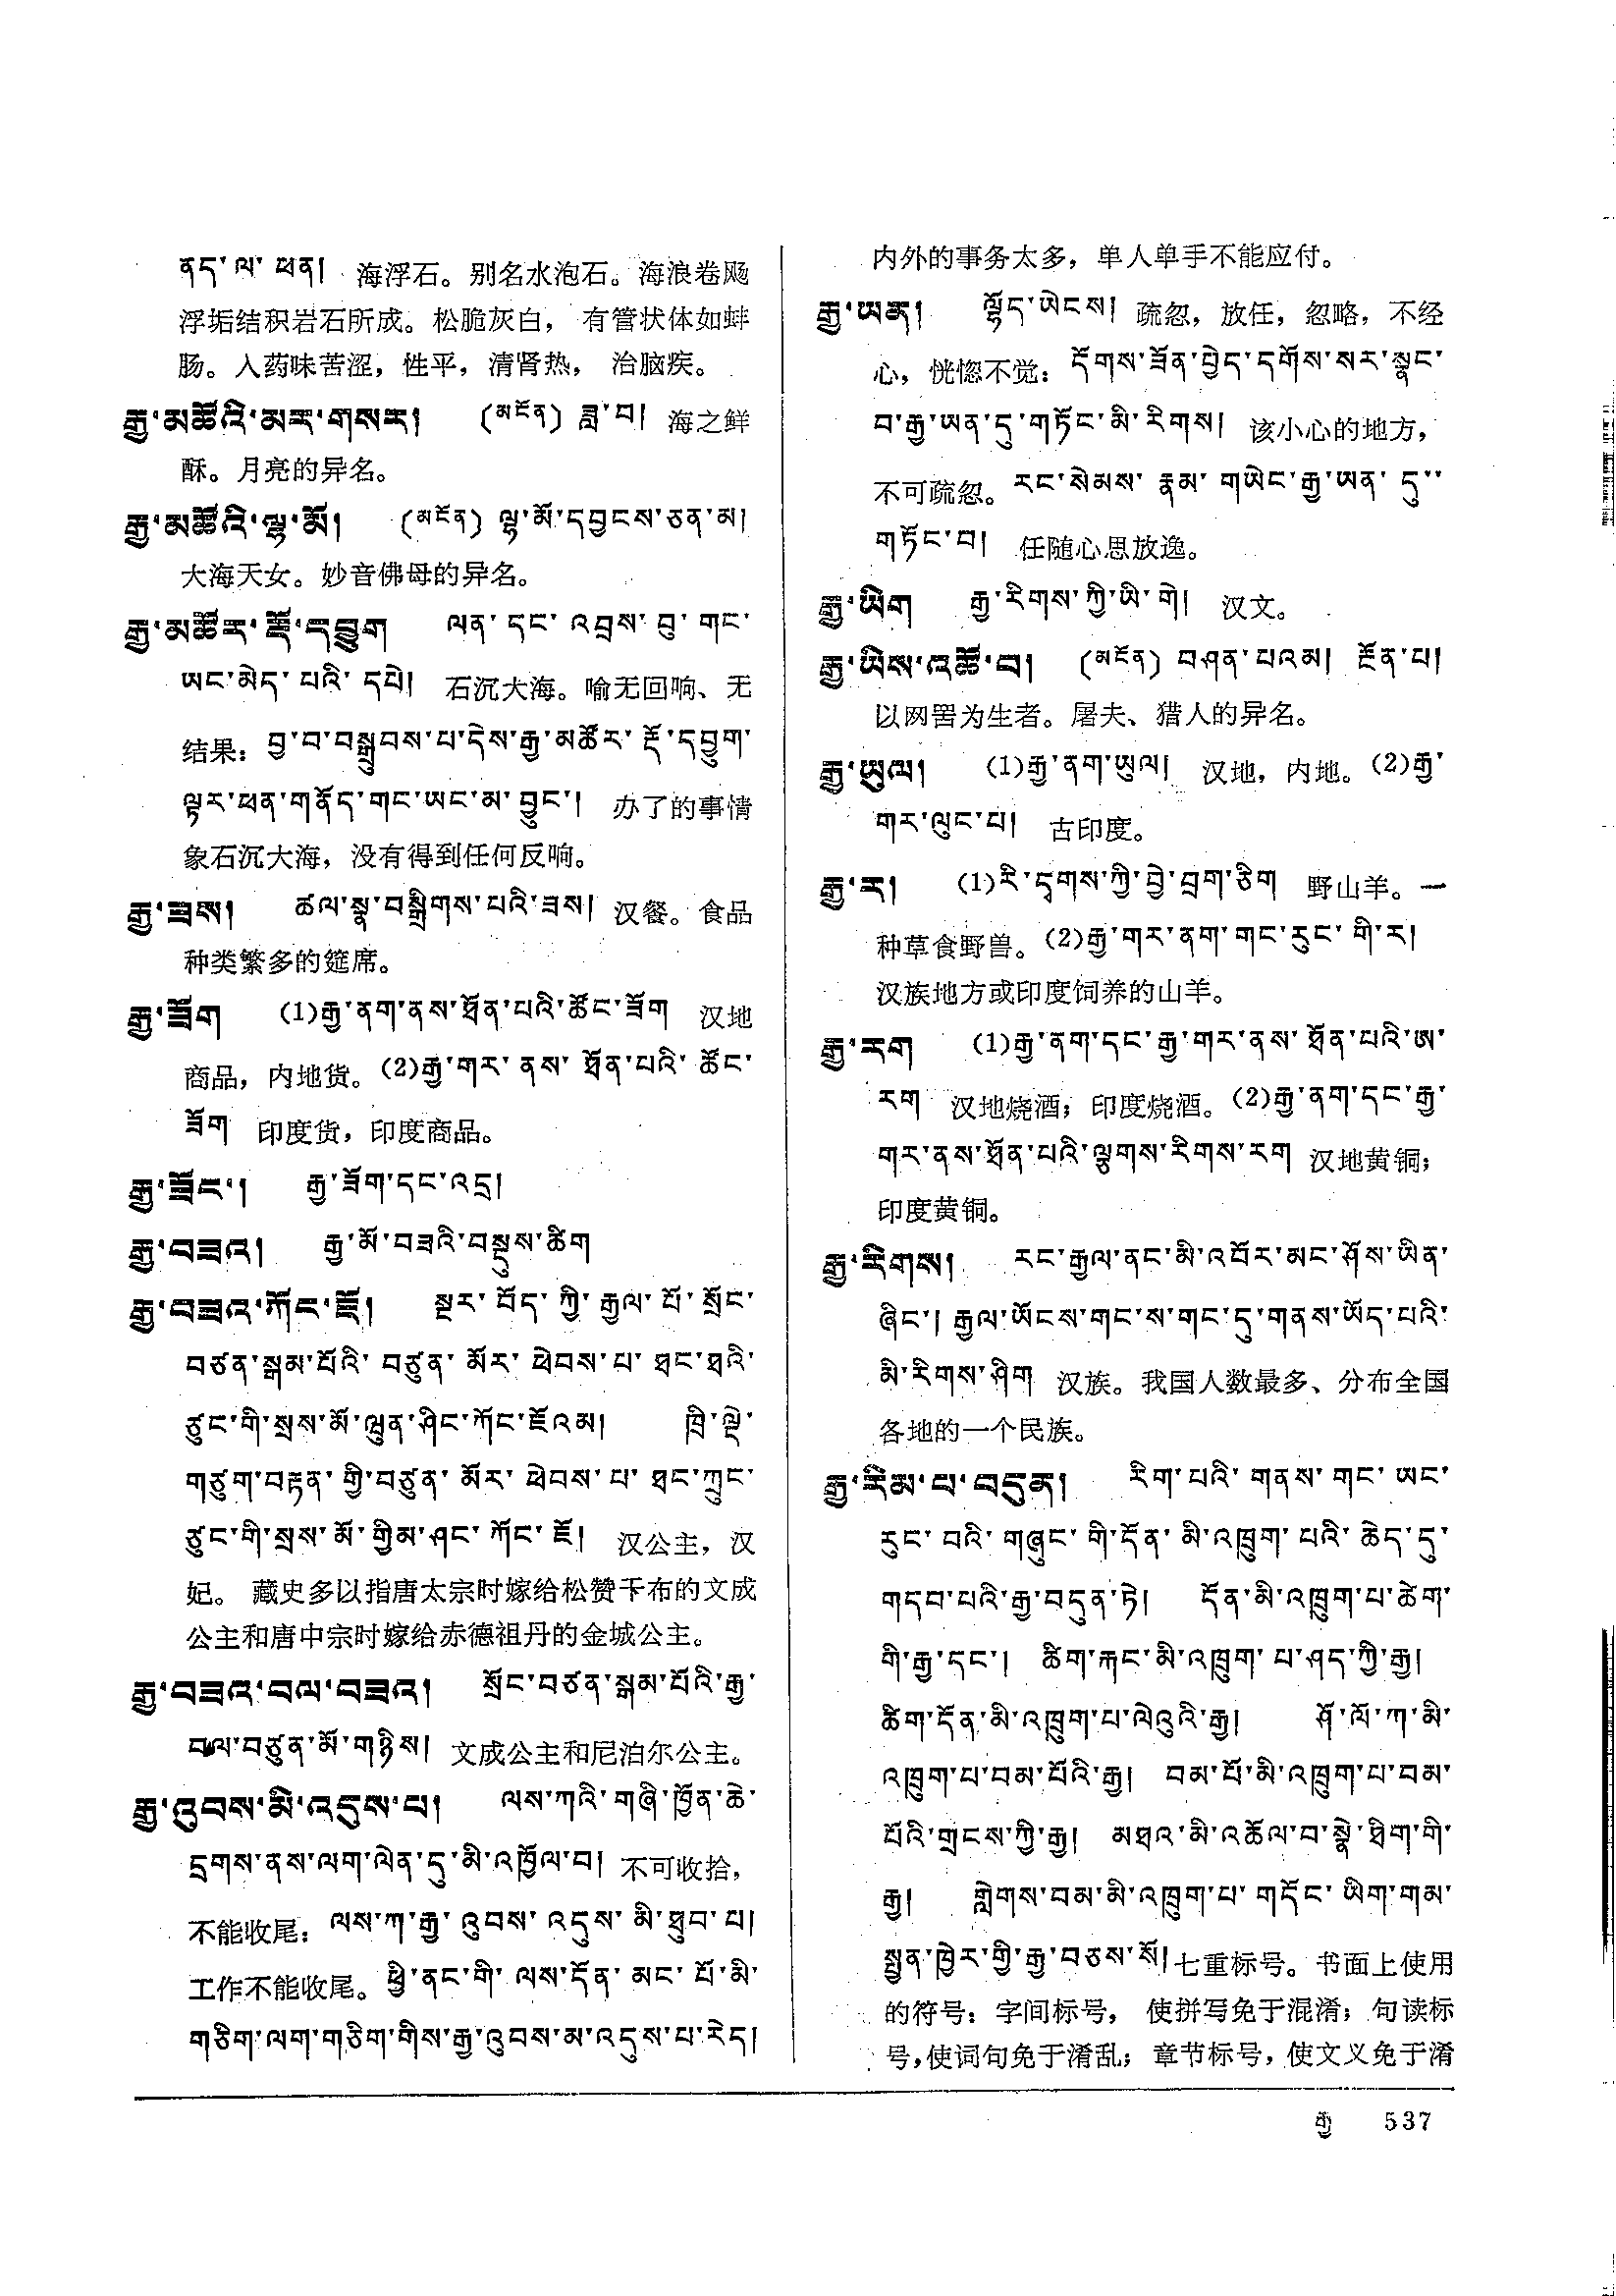 ནད་ལ་ཕན། 海浮石。别名水泡石。海浪卷飏
浮垢结积岩石所成。松脆灰白，有管状体如蚌
肠。入药味苦涩，性平，清肾热，治脑疾。
རྒྱ་མཚོའི་མར་གསར། (མངོན) ཟླ་བ། 海之鲜
酥。月亮的异名。
རྒྱ་མཚོའི་ལྷ་མོ། (མངོན) ལྷ་མོ་དབྱངས་ཅན་མ།
大海天女。妙音佛母的异名。
རྒྱ་མཚོར་རྡོ་དབྱུག ལན་དང་འབྲས་བུ་གང་
ཡང་མེད་པའི་དཔེ། 石沉大海。喻无回响、无
结果：བྱ་བ་བསྒྲུབས་པ་དེས་རྒྱ་མཚོར་རྡོ་དབྱུག་
ལྟར་ཕན་གནོད་གང་ཡང་མ་བྱུང་། 办了的事情
象石沉大海，没有得到任何反响。
རྒྱ་ཟས། ཚལ་སྣ་བསྒྲིགས་པའི་ཟས། 汉餐。食品
种类繁多的筵席。
རྒྱ་ཟོག (1)རྒྱ་ནག་ནས་ཐོན་པའི་ཚོང་ཟོག 汉地
商品，内地货。(2)རྒྱ་གར་ནས་ཐོན་པའི་ཚོང་
ཟོག 印度货，印度商品。
རྒྱ་ཟོང་། རྒྱ་ཟོག་དང་འདྲ།
རྒྱ་བཟའ། རྒྱ་མོ་བཟའི་བསྡུས་ཚིག
རྒྱ་བཟའ་ཀོང་ཇོ། སྔར་བོད་ཀྱི་རྒྱལ་པོ་སྲོང་
བཙན་སྒམ་པོའི་བཙུན་མོར་ཕེབས་པ་ཐང་ཐའི་
ཙུང་གི་སྲས་མོ་ལུན་ཤིང་ཀོང་ཇོའམ། ཁྲི་ལྡེ་
གཙུག་བརྟན་གྱི་བཙུན་མོར་ཕེབས་པ་ཐང་ཀྲུང་
ཙུང་གི་སྲས་མོ་གྱིམ་ཤང་ཀོང་ཇོ། 汉公主，汉
妃。藏史多以指唐太宗时嫁给松赞干布的文成
公主和唐中宗时嫁给赤德祖丹的金城公主。
རྒྱ་བཟའ་བལ་བཟའ། སྲོང་བཙན་སྒམ་པོའི་རྒྱ་
བལ་བཙུན་མོ་གཉིས། 文成公主和尼泊尔公主。
རྒྱ་འུབས་མི་འདུས་པ། ལས་ཀའི་གཞི་ཁྱོན་ཆེ་
དྲགས་ནས་ལག་ལེན་དུ་མི་འཁྱོལ་བ། 不可收拾，
不能收尾：ལས་ཀ་རྒྱ་འུབས་འདུས་མི་ཐུབ་པ།
工作不能收尾。ཕྱི་ནང་གི་ལས་དོན་མང་པོ་མི་
གཅིག་ལག་གཅིག་གིས་རྒྱ་འུབས་མ་འདུས་པ་རེད།
内外的事务太多，单人单手不能应付。
རྒྱ་ཡན། ལྷོད་ཡེངས། 疏忽，放任，忽略，不经
心，恍惚不觉：དོགས་ཟོན་བྱེད་དགོས་སར་སྣང་
བ་རྒྱ་ཡན་དུ་གཏོང་མི་རིགས། 该小心的地方，
不可疏忽。རང་སེམས་རྣམ་གཡེང་རྒྱ་ཡན་དུ་
གཏོང་བ། 任随心思放逸。
རྒྱ་ཡིག རྒྱ་རིགས་ཀྱི་ཡི་གེ། 汉文。
རྒྱ་ཡིས་འཚོ་བ། (མངོན) བཤན་པའམ། རྔོན་པ།
以网罟为生者。屠夫、猎人的异名。
རྒྱ་ཡུལ། (1)རྒྱ་ནག་ཡུལ། 汉地，内地。(2)རྒྱ་
གར་ལུང་པ། 古印度。
རྒྱ་ར། (1)རི་དྭགས་ཀྱི་བྱེ་བྲག་ཅིག 野山羊。一
种草食野兽。(2)རྒྱ་གར་ནག་གང་རུང་གི་ར།
汉族地方或印度饲养的山羊。
རྒྱ་རག (1)རྒྱ་ནག་དང་རྒྱ་གར་ནས་ཐོན་པའི་ཨ་
རག 汉地烧酒；印度烧酒。(2)རྒྱ་ནག་དང་རྒྱ་
གར་ནས་ཐོན་པའི་ལྕགས་རིགས་རག 汉地黄铜；
印度黄铜。
རྒྱ་རིགས། རང་རྒྱལ་ནང་མི་འབོར་མང་ཤོས་ཡིན་
ཞིང་། རྒྱལ་ཡོངས་གང་ས་གང་དུ་གནས་ཡོད་པའི་
མི་རིགས་ཤིག 汉族。我国人数最多、分布全国
各地的一个民族。
རྒྱ་རིམ་པ་བདུན། རིག་པའི་གནས་གང་ཡང་
རུང་བའི་གཞུང་གི་དོན་མི་འཁྲུག་པའི་ཆེད་དུ་
གདབ་པའི་རྒྱ་བདུན་ཏེ། དོན་མི་འཁྲུག་པ་ཚེག་
གི་རྒྱ་དང་། ཚིག་རྐང་མི་འཁྲུག་པ་ཤད་ཀྱི་རྒྱ།
ཚིག་དོན་མི་འཁྲུག་པ་ལེའུའི་རྒྱ། ཤོ་ལོ་ཀ་མི་
འཁྲུག་པ་བམ་པོའི་རྒྱ། བམ་པོ་མི་འཁྲུག་པ་བམ་
པོའི་གྲངས་ཀྱི་རྒྱ། མཐའ་མི་འཚོལ་བ་སྣེ་ཐིག་གི་
རྒྱ། གླེགས་བམ་མི་འཁྲུག་པ་གདོང་ཡིག་གམ་
སྤྱན་ཁྱེར་གྱི་རྒྱ་བཅས་སོ། 七重标号。书面上使用
的符号：字间标号，使拼写免于混淆；句读标
号，使词句免于淆乱；章节标号，使文义免于淆
རྒྱ 537